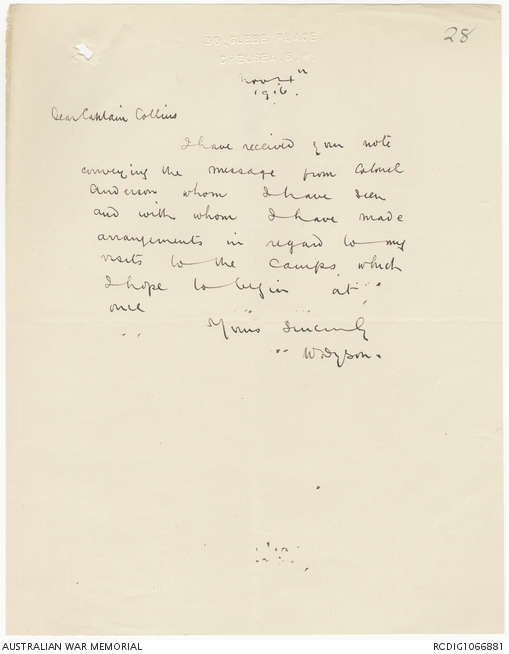 28
GLEBE PLACE
CHELSEA, S.W.
Nov 24th
1916.
Dear Captain Collins
I have received your note
conveying the message from Colonel
Anderson whom I have seen
and with whom I have made
arrangements in regard to my
visits to the camps which
I hope to begin at
once
Yours Sincerely
W. Dyson.
AUSTRALIAN WAR MEMORIAL
RCDIG1066881